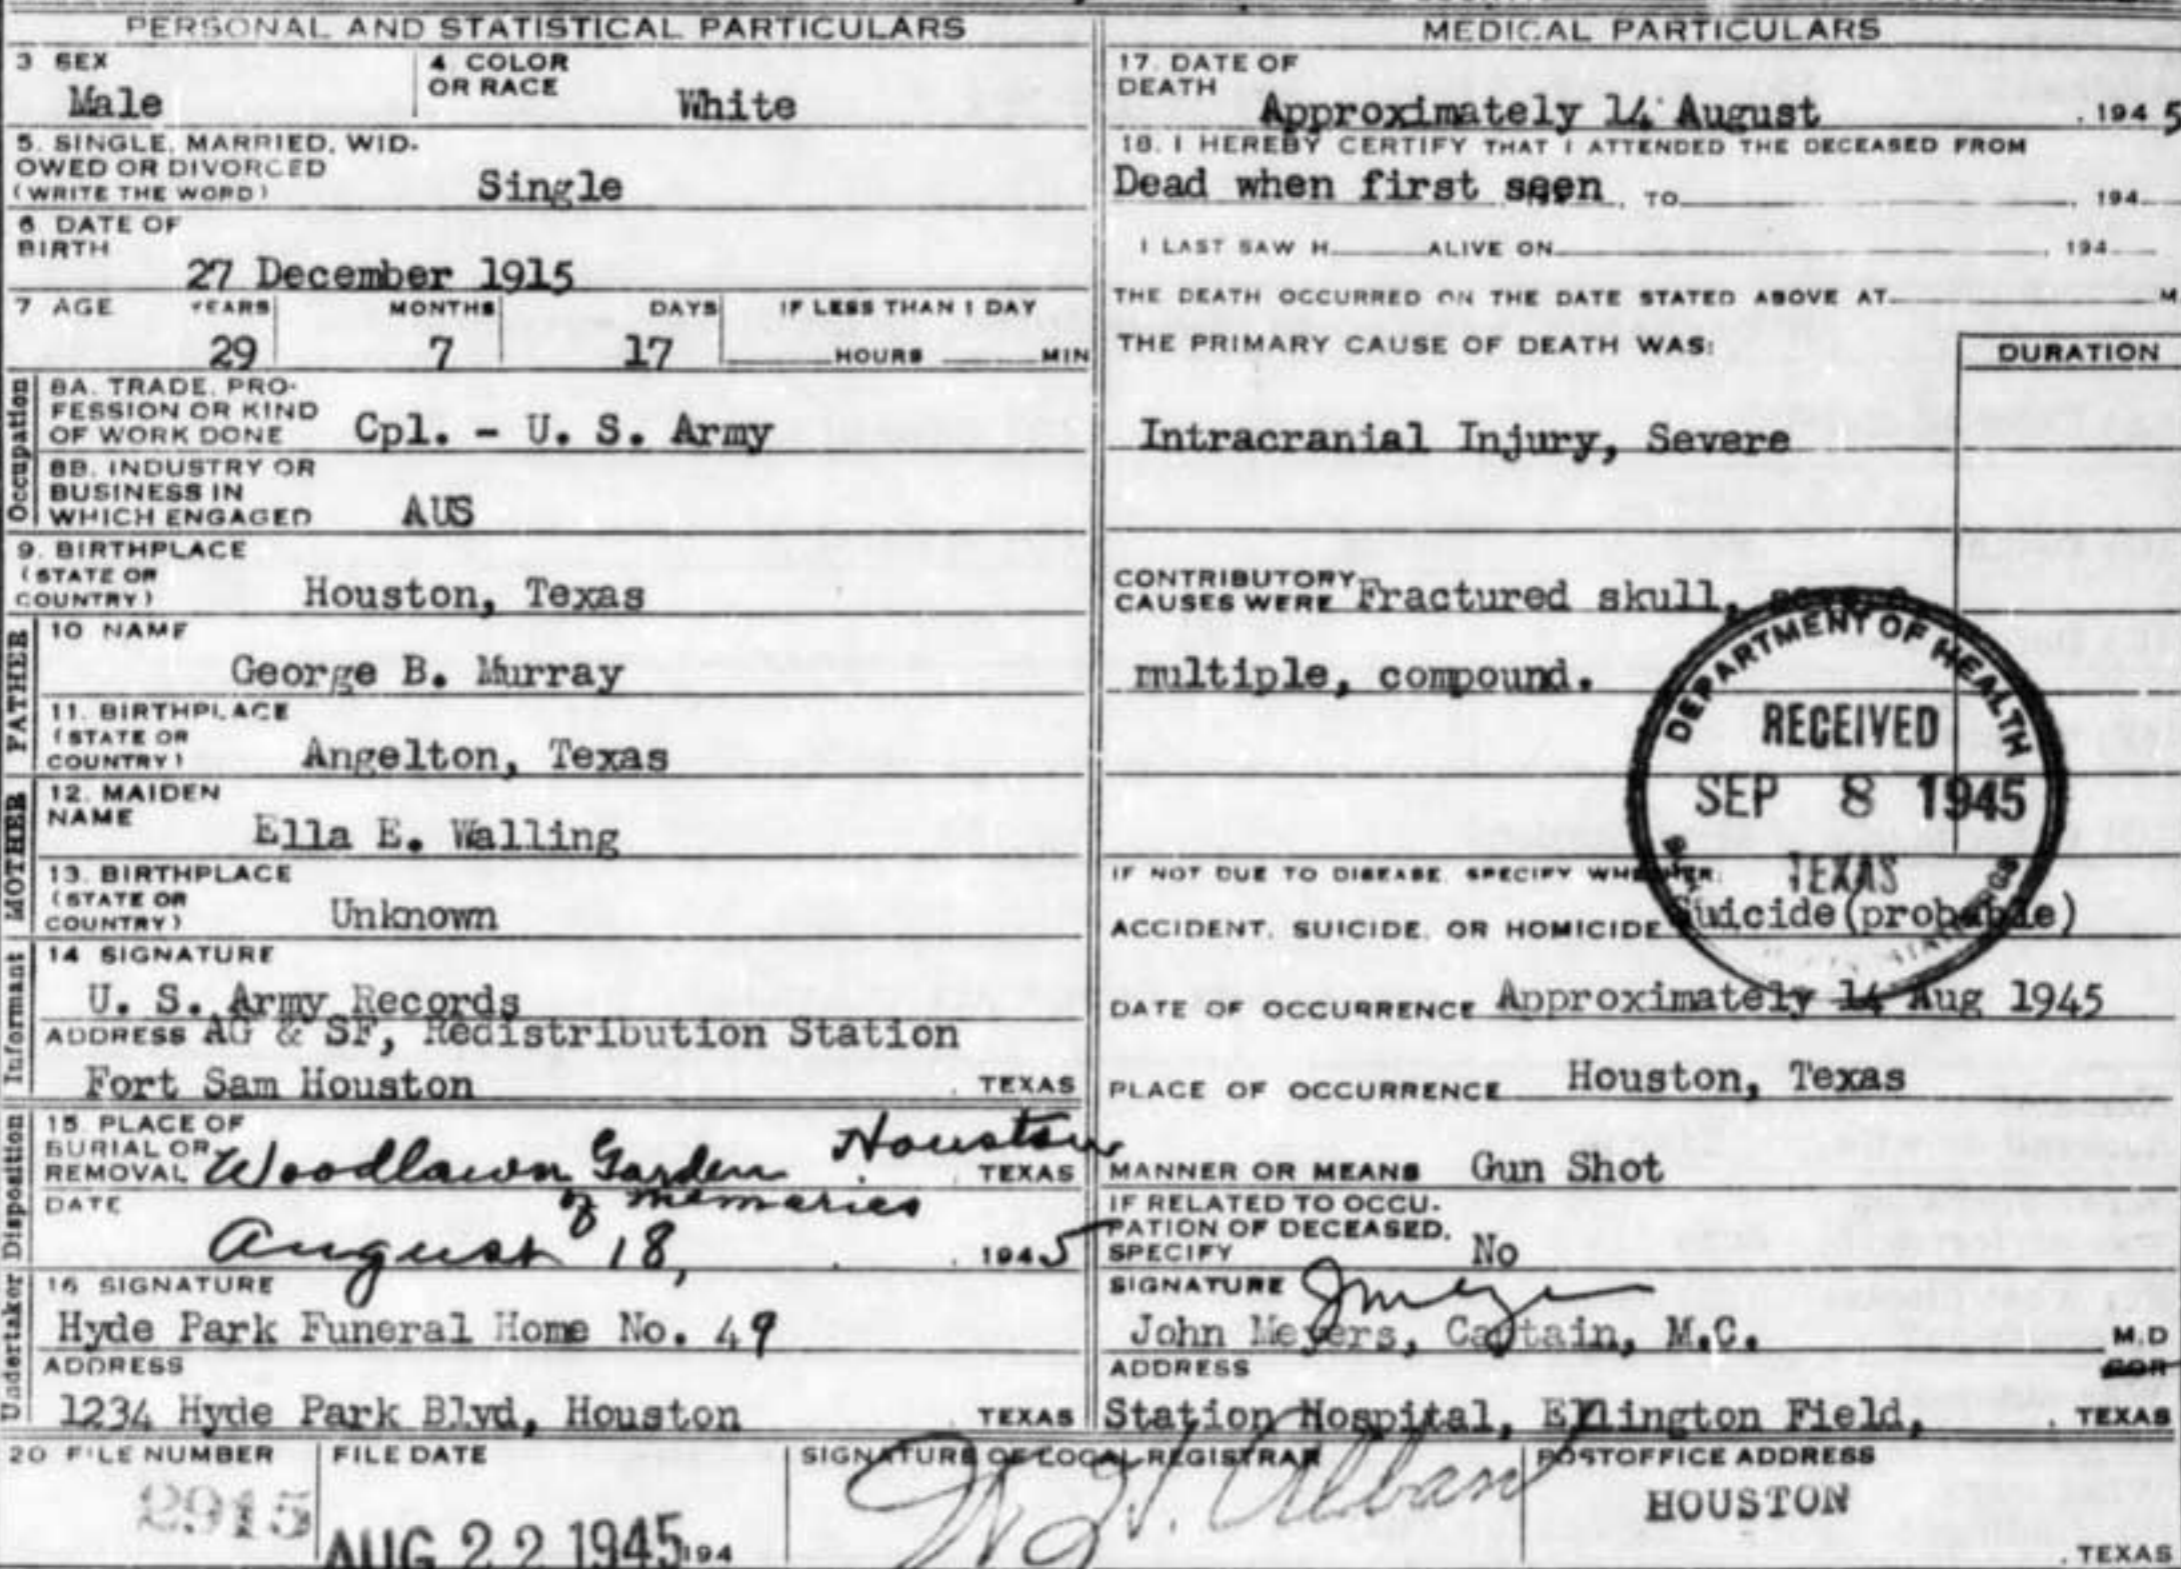 PERSONAL AND STATISTICAL PARTICULARS
3 SEX
Male
4. COLOR
OR RACE
White
5. SINGLE, MARRIED, WID-
OWED OR DIVORCED
(WRITE THE WORD)
Single
6 DATE OF
BIRTH
27 December 1915
7 AGE YEARS MONTHS DAYS IF LESS THAN 1 DAY
29 7 17 HOURS MIN
Occupation
8A. TRADE, PRO-
FESSION OR KIND
OF WORK DONE
Cpl. - U. S. Army
8B. INDUSTRY OR
BUSINESS IN
WHICH ENGAGED
AUS
9. BIRTHPLACE
(STATE OR
COUNTRY)
Houston, Texas
FATHER
10 NAME
George B. Murray
11. BIRTHPLACE
(STATE OR
COUNTRY)
Angelton, Texas
MOTHER
12. MAIDEN
NAME
Ella E. Walling
13. BIRTHPLACE
(STATE OR
COUNTRY)
Unknown
Informant
14 SIGNATURE
U. S. Army Records
ADDRESS AG & SF, Redistribution Station
Fort Sam Houston , TEXAS
Disposition
15. PLACE OF
BURIAL OR
REMOVAL Woodlawn Garden Houston TEXAS
of Memories
DATE
August 18, , 1945
Undertaker
16 SIGNATURE
Hyde Park Funeral Home No. 49
ADDRESS
1234 Hyde Park Blvd, Houston TEXAS
MEDICAL PARTICULARS
17. DATE OF
DEATH
Approximately 14 August , 1945
18. I HEREBY CERTIFY THAT I ATTENDED THE DECEASED FROM
Dead when first seen, TO , 194
I LAST SAW H ALIVE ON , 194
THE DEATH OCCURRED ON THE DATE STATED ABOVE AT M
THE PRIMARY CAUSE OF DEATH WAS:
DURATION
Intracranial Injury, Severe
CONTRIBUTORY
CAUSES WERE Fractured skull,
multiple, compound.
DEPARTMENT OF HEALTH
RECEIVED
SEP 8 1945
TEXAS
IF NOT DUE TO DISEASE, SPECIFY WHETHER:
ACCIDENT, SUICIDE, OR HOMICIDE Suicide(probable)
DATE OF OCCURRENCE Approximately 14 Aug 1945
PLACE OF OCCURRENCE Houston, Texas
MANNER OR MEANS Gun Shot
IF RELATED TO OCCU-
PATION OF DECEASED,
SPECIFY No
SIGNATURE
John Meyers, Captain, M.C. M.D
ADDRESS
Station Hospital, Ellington Field, , TEXAS
20 FILE NUMBER
2915
FILE DATE
AUG 22 1945 194
SIGNATURE OF LOCAL REGISTRAR
POSTOFFICE ADDRESS
HOUSTON
, TEXAS